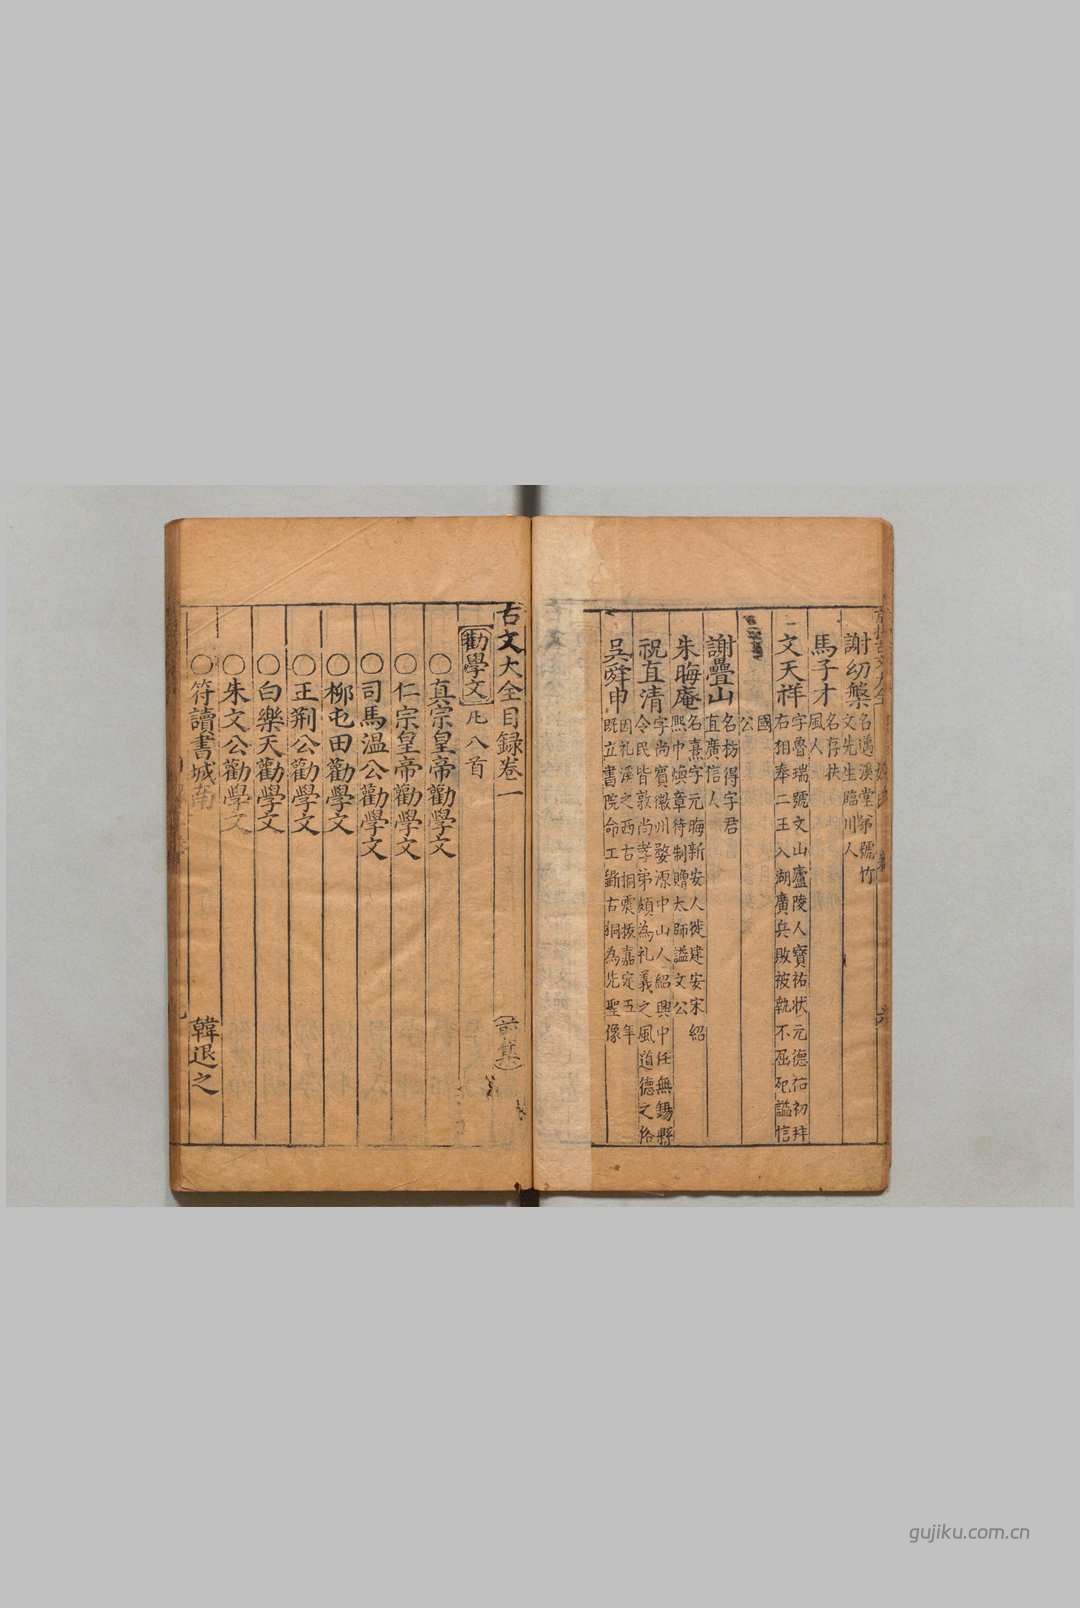 謝幼槃 名薖溪堂弟號竹
文先生臨川人
馬子才 名存扶
風人
文天祥 字魯瑞號文山廬陵人寶祐狀元德祐初拜
右相奉二王入湖廣兵敗被執不屈死謚信
國
公
謝疊山 名枋得字君
直廣信人
朱晦庵 名熹字元晦新安人徙建安宋紹
熙中煥章待制贈太師謚文公
祝直清 字尚賓徽州婺源中山人紹興中任無錫縣
令民皆敦尚孝弟頗為礼義之風道德之俗
吳舜申 因礼溪之西古桐震拔嘉定五年
既立書院命工斵古桐為先聖像
古文大全目録卷一
前集
勸學文 凡八首
〇真宗皇帝勸學文
〇仁宗皇帝勸學文
〇司馬温公勸學文
〇柳屯田勸學文
〇王荆公勸學文
〇白樂天勸學文
〇朱文公勸學文
〇符讀書城南 韓退之
gujiku.com.cn